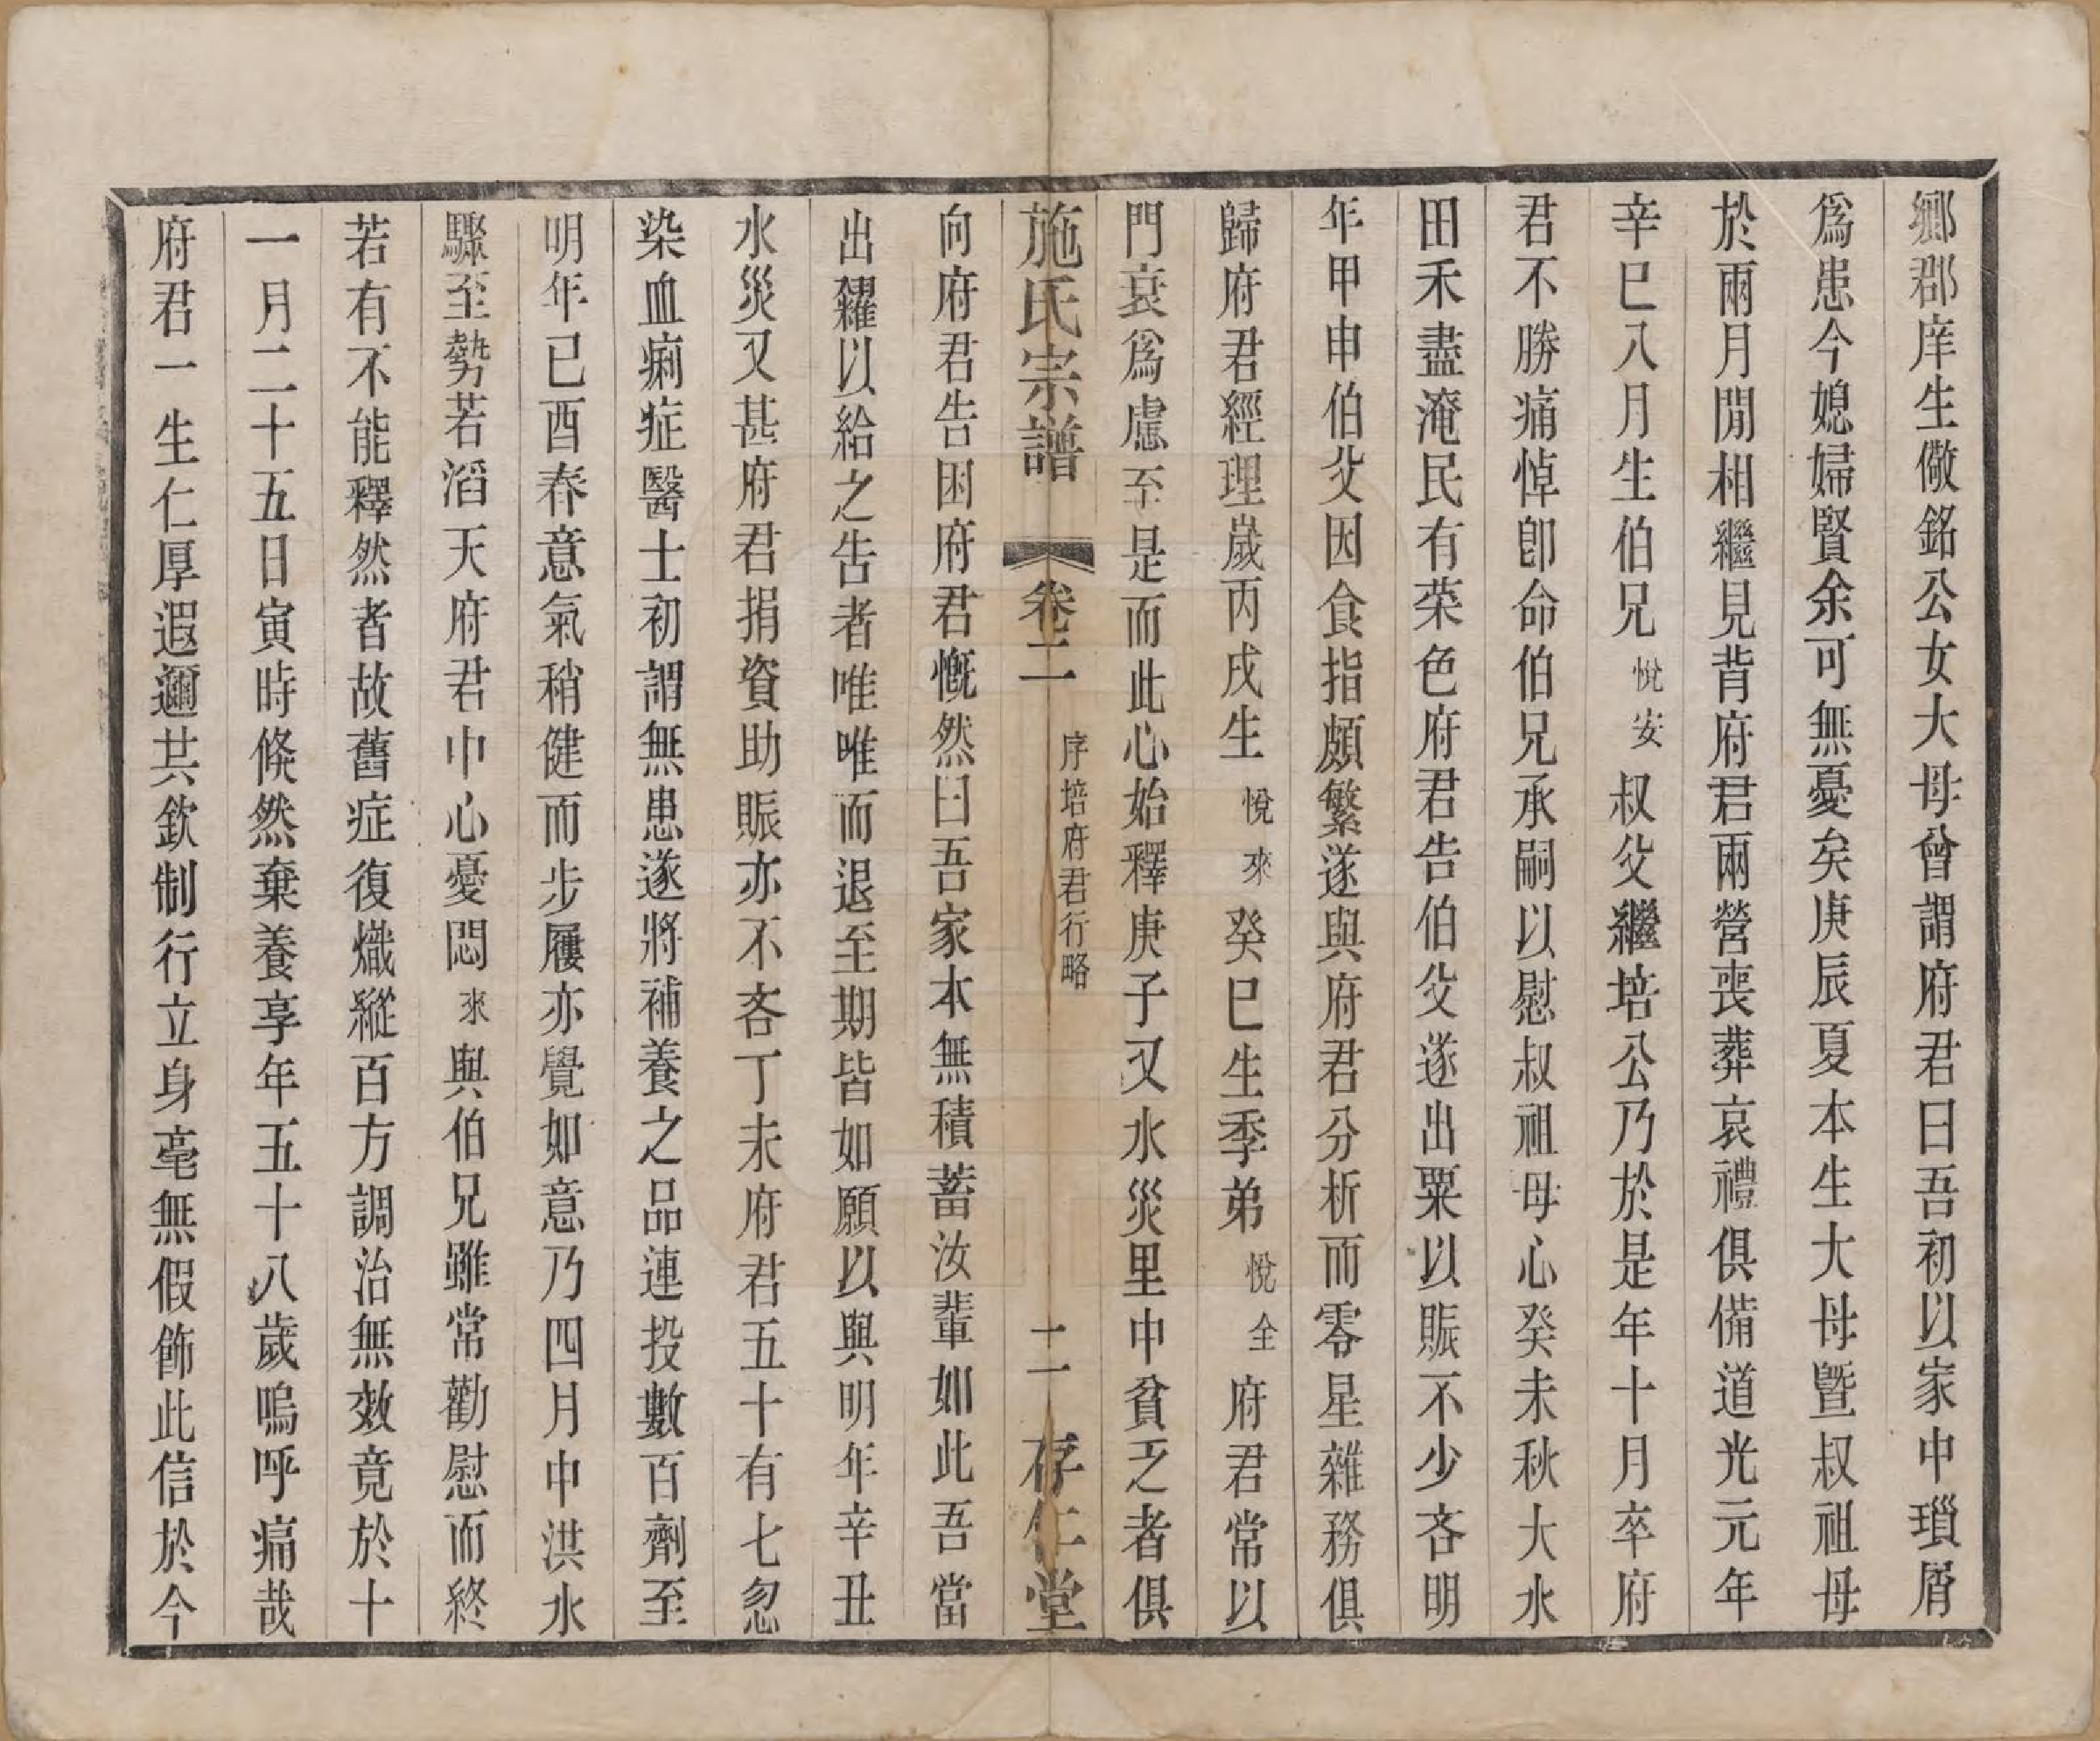 鄉郡庠生儆銘公女大母曾謂府君曰吾初以家中瑣屑
爲患今媳婦賢余可無憂矣庚辰夏本生大母曁叔祖母
於兩月閒相繼見背府君兩營喪葬哀禮俱備道光元年
辛巳八月生伯兄悅安叔父繼培公乃於是年十月卒府
君不勝痛悼卽命伯兄承嗣以慰叔祖母心癸未秋大水
田禾盡淹民有菜色府君告伯父遂出粟以賑不少吝明
年甲申伯父因食指頗繁遂與府君分析而零星雜務俱
歸府君經理歲丙戌生悅來癸巳生季弟悅全府君常以
門衰爲慮至是而此心始釋庚子又水災里中貧乏者俱
施氏宗譜 卷二 序培府君行略 二 存仁堂
向府君告困府君慨然曰吾家本無積蓄汝輩如此吾當
出糴以給之告者唯唯而退至期皆如願以與明年辛丑
水災又甚府君捐資助賑亦不吝丁未府君五十有七忽
染血痢症醫士初謂無患遂將補養之品連投數百劑至
明年已酉春意氣稍健而步履亦覺如意乃四月中洪水
驟至勢若滔天府君中心憂悶來與伯兄雖常勸慰而終
若有不能釋然者故舊症復熾縱百方調治無效竟於十
一月二十五日寅時倐然棄養享年五十八歲嗚呼痛哉
府君一生仁厚遐邇共欽制行立身毫無假飾此信於今